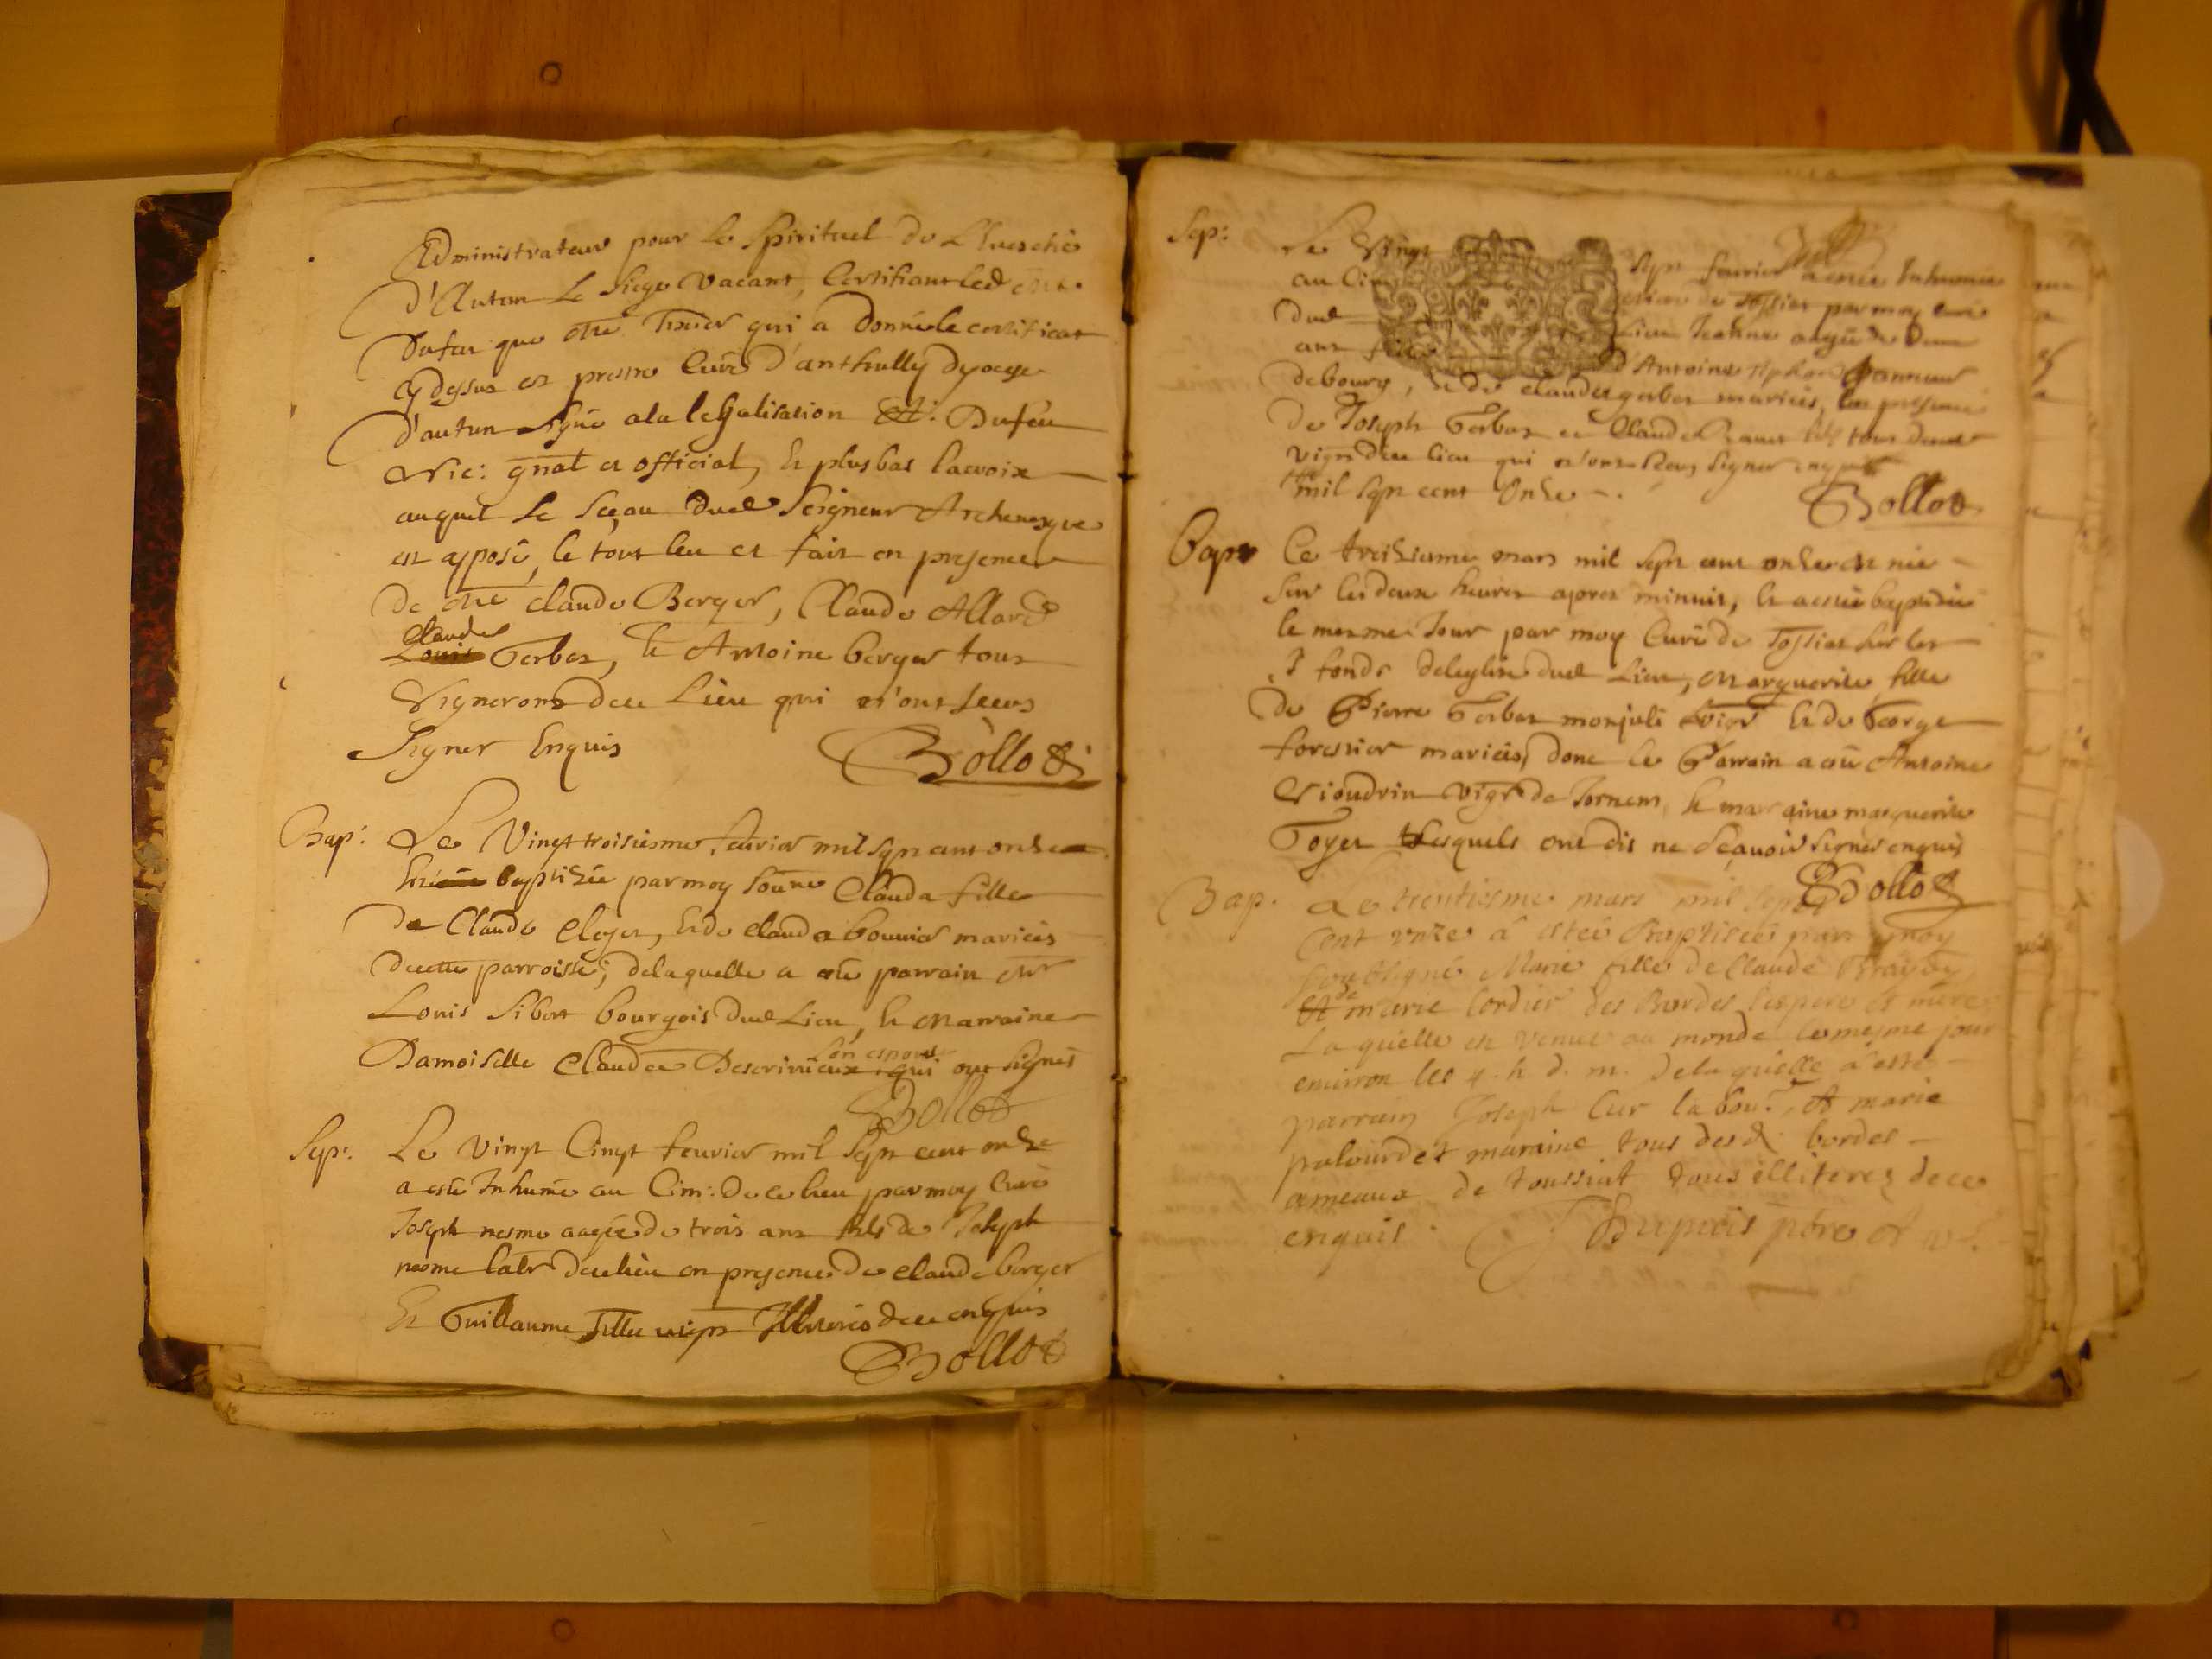 Administrateur pour le Spirituel de L'Euesché
d'Autun Le Siege Vacant, Certifiant led
Dufas que qui a Donné le certificat
Cy dessus est prestre Curé d'anthully dyocese
d'autun signé a la legalisation Dufeu
Vic: gnãl et official, Et plus bas lacroix
auquel le Sceau dud Seigneur Archeuesque
est apposé, le tout leu et fait en presence
de Claude Berger, Claude Allard
Claude
Louis Gerbaz, Et Antoine berger tous
Vignerons dece Lieu qui n'ont sceus
Signer Enquis Bollot
Bap: Le Vingt troisiesme feurier mil sept cent onze
baptizée par moy Soune Claudа fille
De Claude Cloyer, Et de Claudа bouuier mariéés
de cette parroisse; de laquelle a esté parrain Mr
Louis Sibert bourgois dud Lieu, Et Marraine
son espouse
Damoiselle Claudа qui ont signés
Bollot
Sep: Le Vingt Cinqt feurier mil Sept cent onze
a esté Inhumé au Cim: de ce lieu par moy Curé
Joseph nesme aagée de trois ans fils de Joseph
nesme labr dece lieu en presence de Claude berger
Et Guillaume vigns Illiterés dece enquis
Bollot
Sep: Le Vingt Sept feurier a esté Inhumée
au Cim de Tossiat par moy Curé
dud Lieu Jeanne aagée de deux
ans fille d'Antoine
de bourg, Et de Claudа gerbaz mariéés, En presence
De Joseph Gerbaz et Claude tous deux
vigns dece lieu qui n'ont sceus signer enquis
mil sept cent Onze
Bollot
Bap Ce treiziesme mars mil sept cent onze est née
sur les deux heures apres minuit, Et a esté baptizée
le mesme Jour par moy Curé de Tossiat sur les
fonds de leglise dud Lieu, Marguerite fille
De Pierre Gerbaz monjuli Vigr Et de George
forestier mariéés, donc le Parrain a esté Antoine
Vioudrin Vigr de Jornem, Et marraine marguerite
Goyet Lesquels ont dis ne Sçauoir signer enquis
Bollot
Bap. Le trentiesme mars mil sept
Cent unze à esteé Baptiseé par moy
soubsigné Marie fille de Claude
et de marie Cordier des Bordes ses pere et mere
La quelle est Venue au monde le mesme jour
enuiron les 4. h. d. m. de la quelle à esté
parrain Joseph Cur labour. Et marie
palourdet maraine tous des d. bordes
ameaux de toussiat tous illiterez de ce
enquis Dupuis ptre et